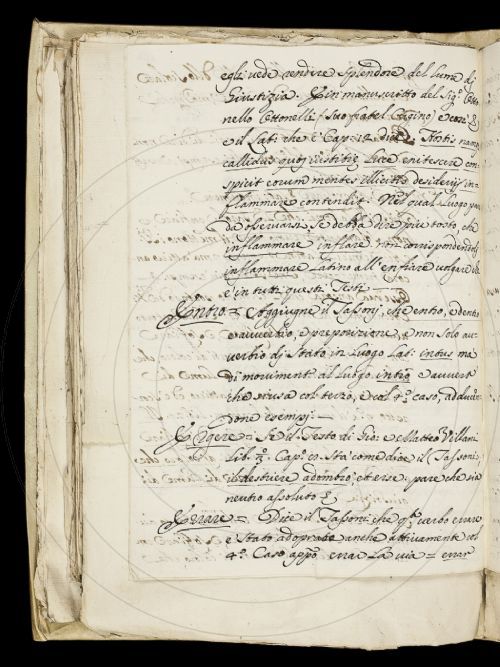 egli vede rendire splendore del lume dj
Giustizia. Jn in manuscritto del Sig.r Otto
nello Ottonelli (suo fratel Cugino) e
e il Lat: che è Cap: 12. dice Antis namq
callidus quos iustitie luce enitescere con
spicit eorum mentes illicitis desiderijs in
flammare contendit: Nel qual luogo par
da osservarsi, se debba dire più tosto che
inflammare, inflare non corrispondendo
inflammare Latino all'enfiare volgare
e in tutti questi Testi
Entro = Aggiugne il Tassonj, che entro, e dentro
e avverbio, e preposizione, e non solo au-
verbio dj stato in luogo Lat: intus ma
di moviment. al luogo intro e avvert
che si usa col terzo, e col 4.o caso, adducen
done esempj. —
Ergere = Se il Testo di Gio: e Matteo Villani
lib. Cap. sta come dice il Tassoni,
il destriere adombrò, et erse: pare che sia
neutro assoluto
Errare = Dice il Tassoni che q.o verbo errare
è stato adoprato anche attivamente col
4.o Caso app.o errar la via = errar